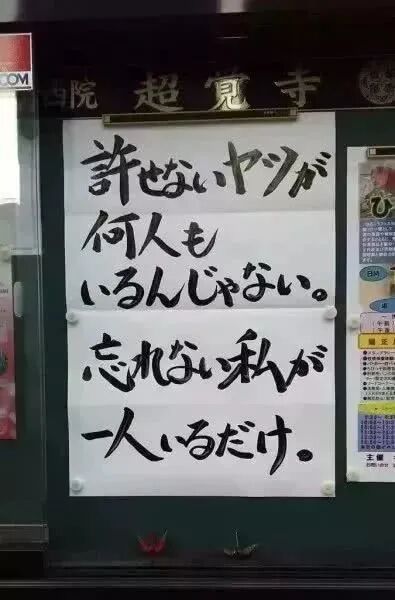 西院 超覚寺
許せないヤツが
何人も
いるんじゃない。
忘れない私が
一人いるだけ。
.COM
ひ
日時
主催